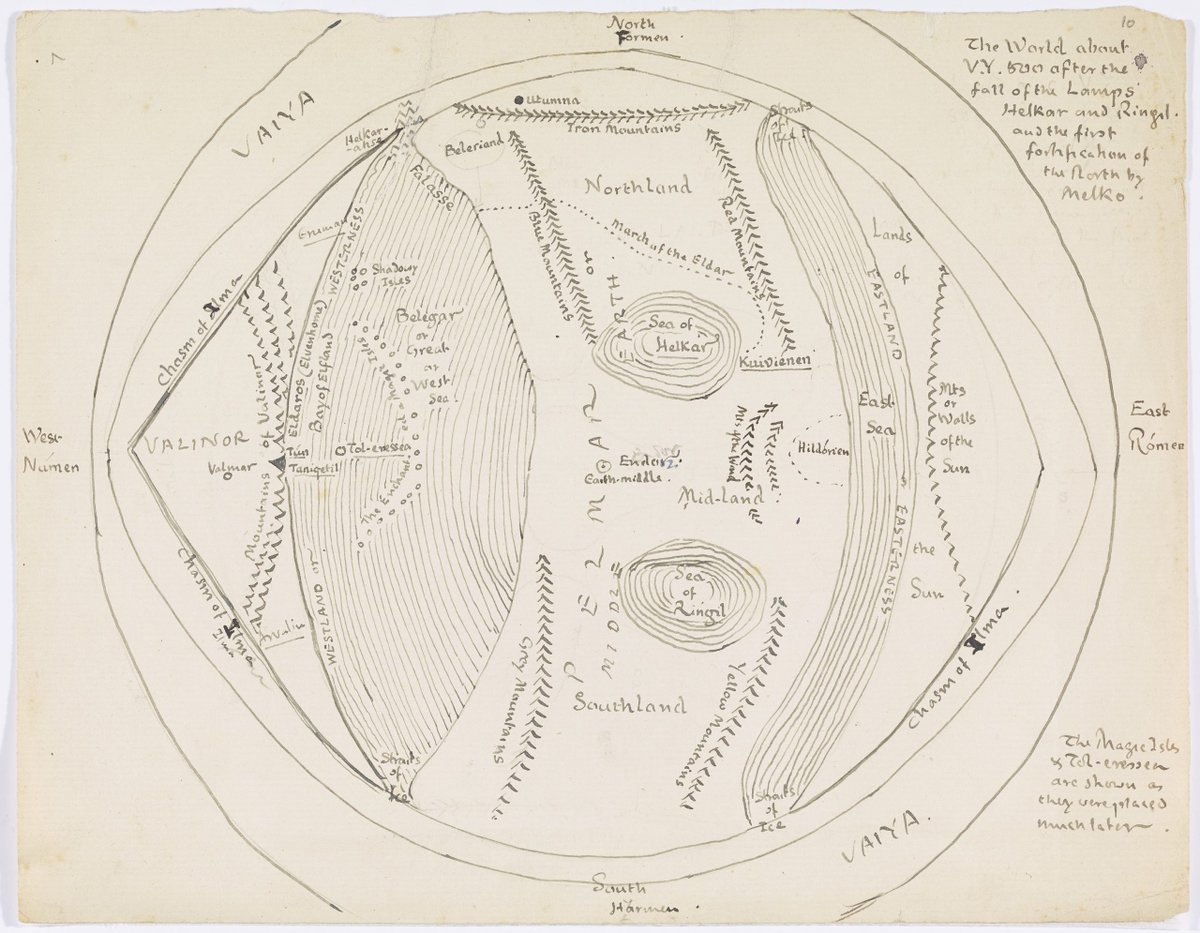 North
Formen.
10
The World about
V.Y. 500 after the
fall of the Lamps
Helkar and Ringil.
and the first
fortification of
the North by
Melko.
VAIYA
Utumna
Iron Mountains
Straits
of
Ice
Helkar-
akse
Beleriand
Falasse
Northland
Blue Mountains
Red Mountains
March of the Eldar
Lands
of
the
Sun
Eruman
WESTERNESS
Shadowy
Isles
Chasm of Ilma
Belegar
or
Great
or
West
Sea.
The Enchanted or Magic Isles
Sea of
Helkar
Kuiviénen
EASTLAND
or EASTERNESS
East
Sea
Mts
or
Walls
of the
Sun
East
Rómen
West
Númen
VALINOR
Valmar
Mountains of Valinor
Eldaros (Elvenhome)
Bay of Elfland
Tún
Taniqetil
Tol-eressea
MIDDLE
EARTH
Endor
Earth-middle.
Mts of the Wind
Hildórien
Mid-land
Chasm of Ilma
Ilma
WESTLAND or
Sea
of
Ringil
Grey Mountains
Southland
Yellow Mountains
Chasm of Ilma
Straits
of
Ice
Straits
of
Ice
The Magic Isles
& Tol-eressea
are shown as
they were placed
much later.
VAIYA.
South
Harmen.